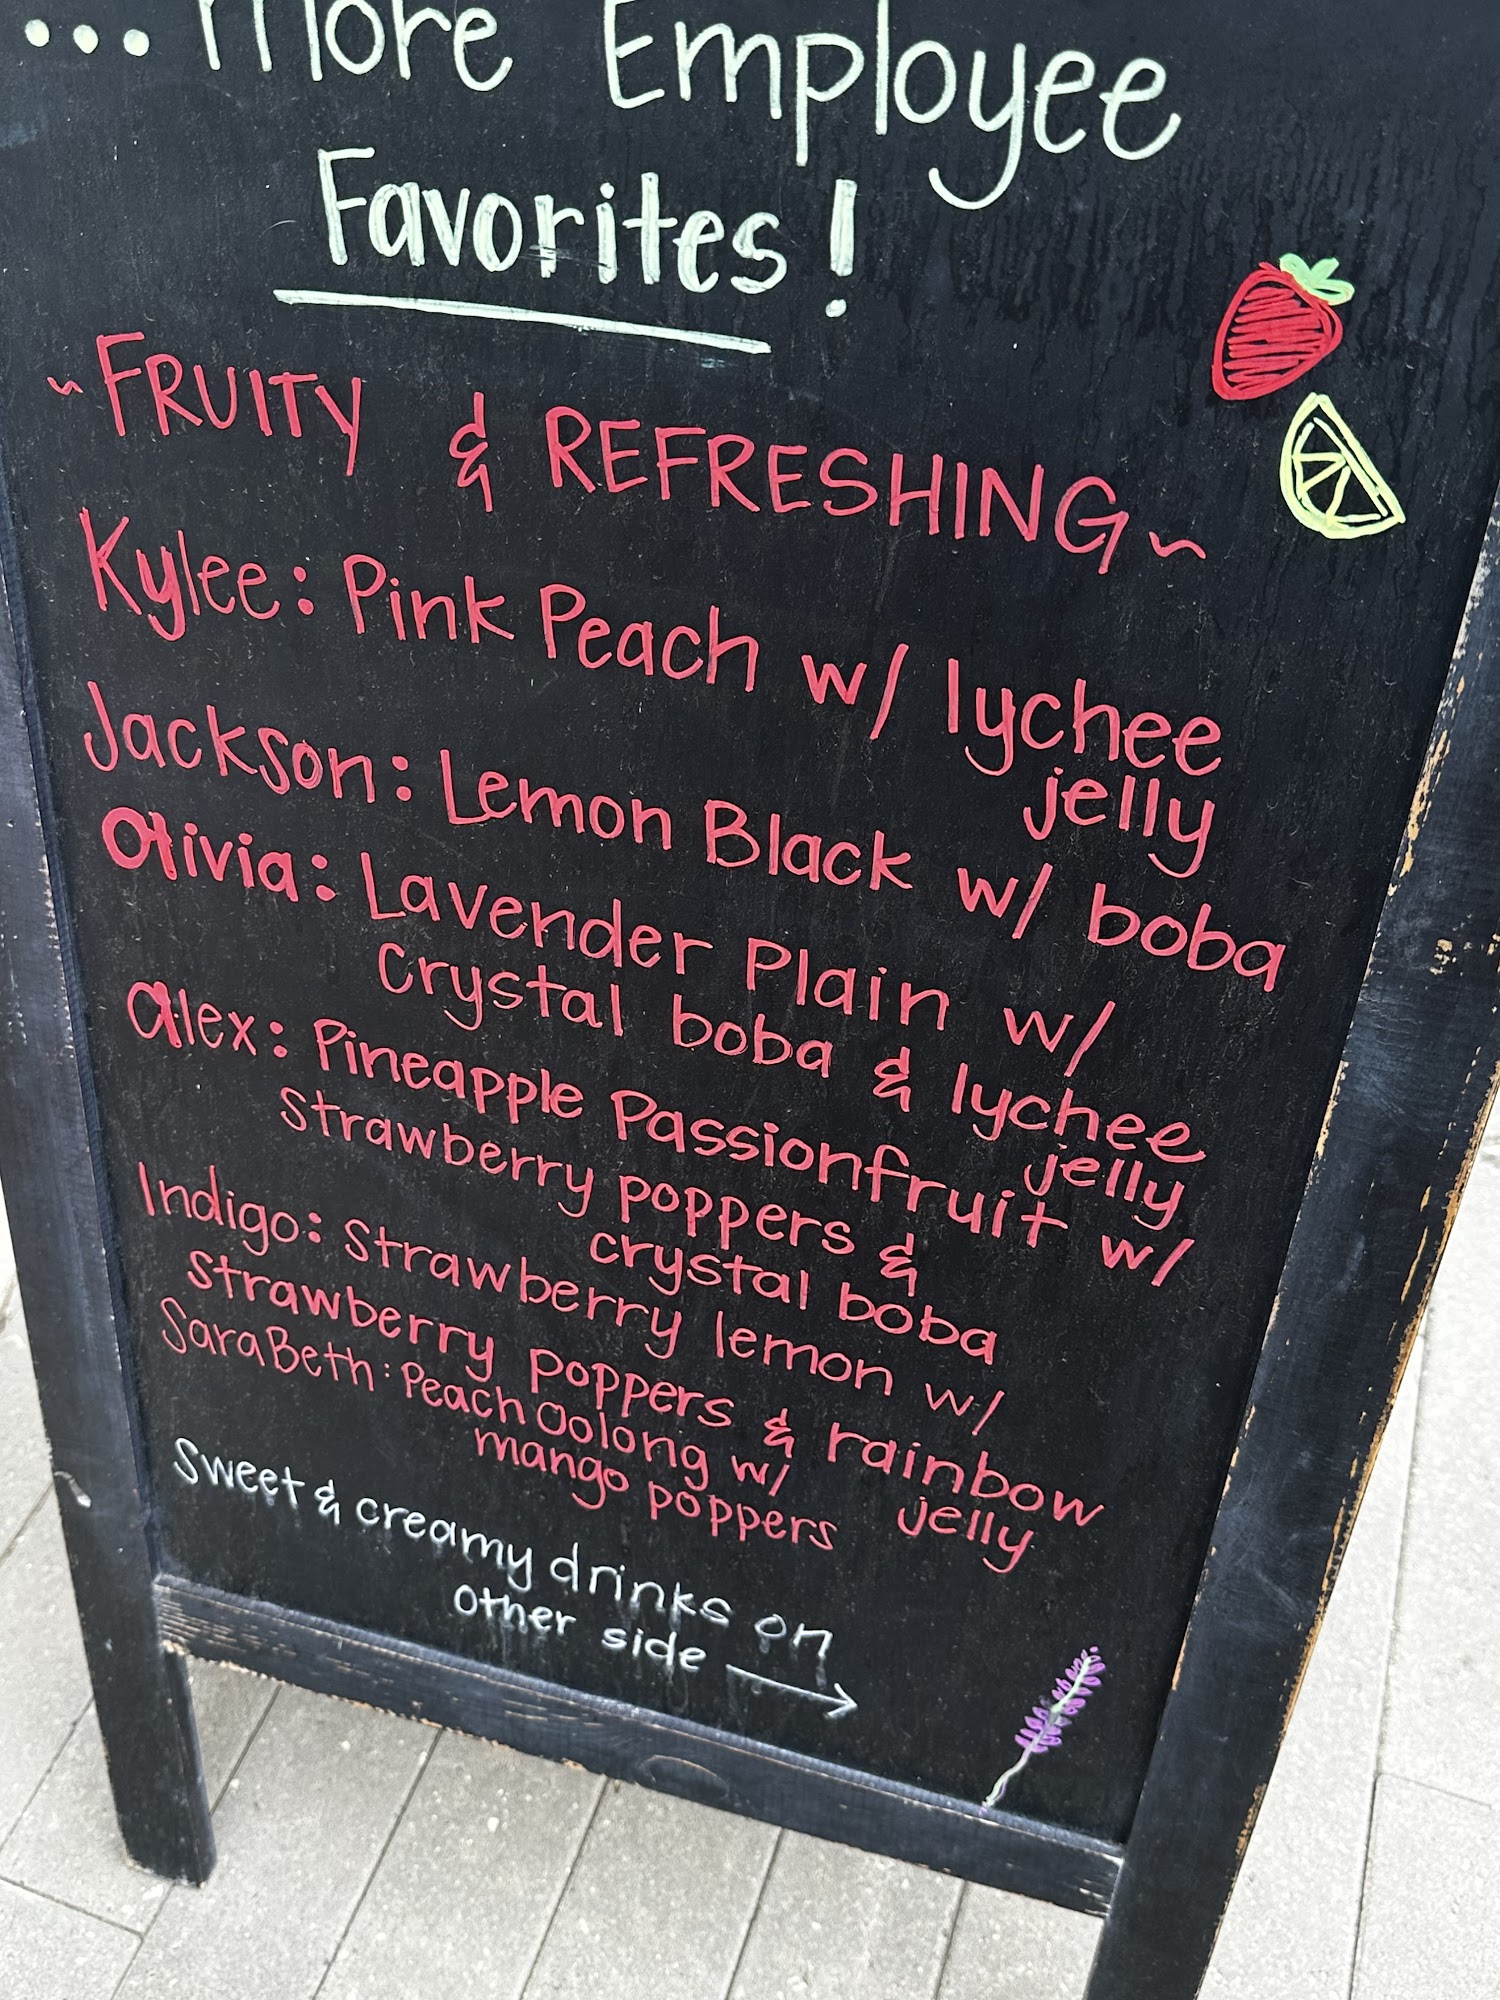 ...More Employee
Favorites!
~FRUITY & REFRESHING~
Kylee: Pink Peach w/ lychee
jelly
Jackson: Lemon Black w/ boba
Olivia: Lavender Plain w/
crystal boba & lychee
jelly
Alex: Pineapple Passionfruit w/
strawberry poppers &
crystal boba
Indigo: Strawberry lemon w/
strawberry poppers & rainbow
jelly
SaraBeth: Peach Oolong w/
mango poppers
Sweet & creamy drinks on
other side →